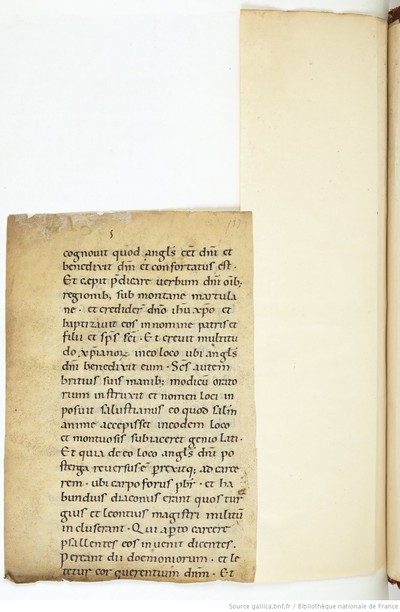 5
cognouit quod angls eēt dn̄i et
benedixit dn̄m et confortatus est.
Et cepit p̄dicare uerbum dn̄i oīb;
regionib; sub montane martula
ne. et crediderˉ dn̄o ih̄u xp̄o et
baptizauit eos in nomine patris et
filii et sp̄s sc̄i. Et creuit multitu
do xp̄ianoꝝ in eo loco ubi angls
dn̄i benedixit eum. Sc̄s autem
britius suis manib; modicū orato
rium instruxit et nomen loci in
posuit salustianus eo quod salutē
anime accepisset in eodem loco
et montuosis subiaceret genio lati.
Et quia de eo loco angls dn̄i po
sterga reuersus ē perrexitq; ad carce
rem. ubi carpoforus pb̄r. et ha
bundius diaconus erant quos tur
gius et leontius magistri militū
incluserant. Qui aperto carcere
psallentes eos inuenit dicentes.
Pereant dii doemoniorum. et le
tetur cor querentium dn̄m. Et
Source gallica.bnf.fr / Bibliothèque nationale de France